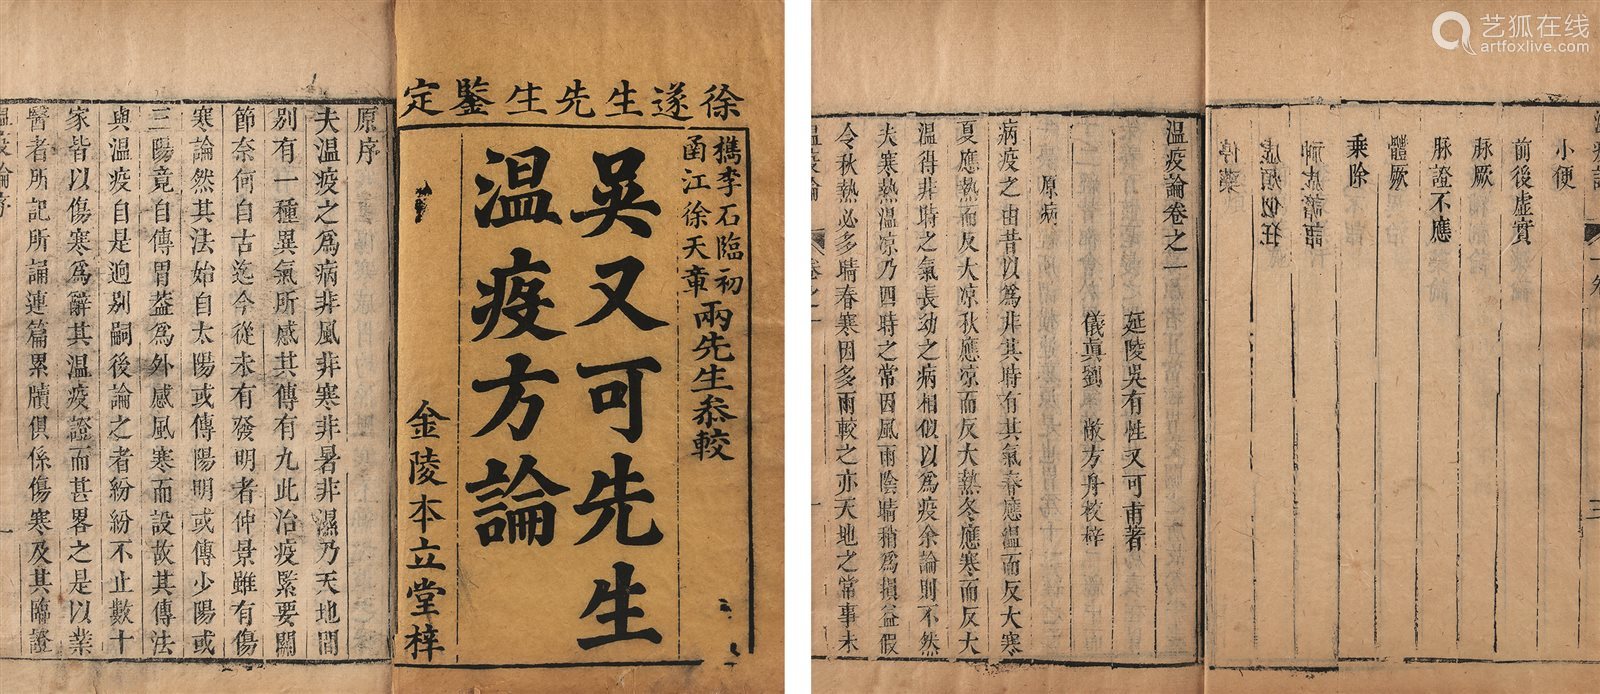 徐遂生先生鑒定
檇李石臨初
函江徐天章
兩先生叅較
吳又可先生
溫疫方論
金陵本立堂梓
原序
夫溫疫之爲病非風非寒非暑非濕乃天地間
别有一種異氣所感其傳有九此治疫緊要關
節奈何自古迄今從未有發明者仲景雖有傷
寒論然其法始自太陽或傳陽明或傳少陽或
三陽竟自傳胃葢爲外感風寒而設故其傳法
與溫疫自是逈别嗣後論之者紛紛不止數十
家皆以傷寒爲辭其溫疫證而甚畧之是以業
醫者所記所誦連篇累牘俱係傷寒及其臨證
小便
前後虛實
脉厥
脉證不應
體厥
乗除
神虛譫語
虛煩似狂
停藥
三
溫疫論卷之一
延陵吳有性又可甫著
儀真劉 敞方舟校梓
原病
病疫之由昔以爲非其時有其氣春應溫而反大寒
夏應熱而反大凉秋應凉而反大熱冬應寒而反大
溫得非時之氣長幼之病相似以爲疫余論則不然
夫寒熱溫凉乃四時之常因風雨陰晴稍爲損益假
令秋熱必多晴春寒因多雨較之亦天地之常事未
溫疫論
卷之一
一
艺狐在线
artfoxlive.com